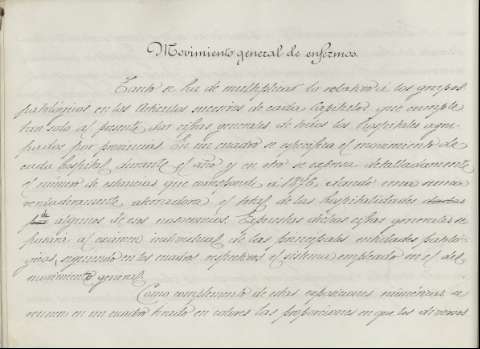 Movimiento general de enfermos.
Tanto se ha de multiplicar lo relativo a los grupos
patológicos en los Artículos de cada Capítulo, que cumple
tan solo al presente dar cifras generales de todos los Hospitales agru-
pados por provincias. En un cuadro se especifica el movimiento de
cada hospital durante el año y en otro se expresa detalladamente
el número de estancias que corresponde a 1876, siendo una suma
verdaderamente aterradora el total de las hospitalidades
algunos de sus nosocomios. Expuestas dichas cifras generales se
pasará al exámen individual de las principales entidades patoló-
gicas, siguiendo en los cuadros respectivos el sistema empleado en el del
movimiento general.
Como complemento de estas exposiciones numéricas se
reunen en un cuadro tirado en colores las proporciones en que los diversos